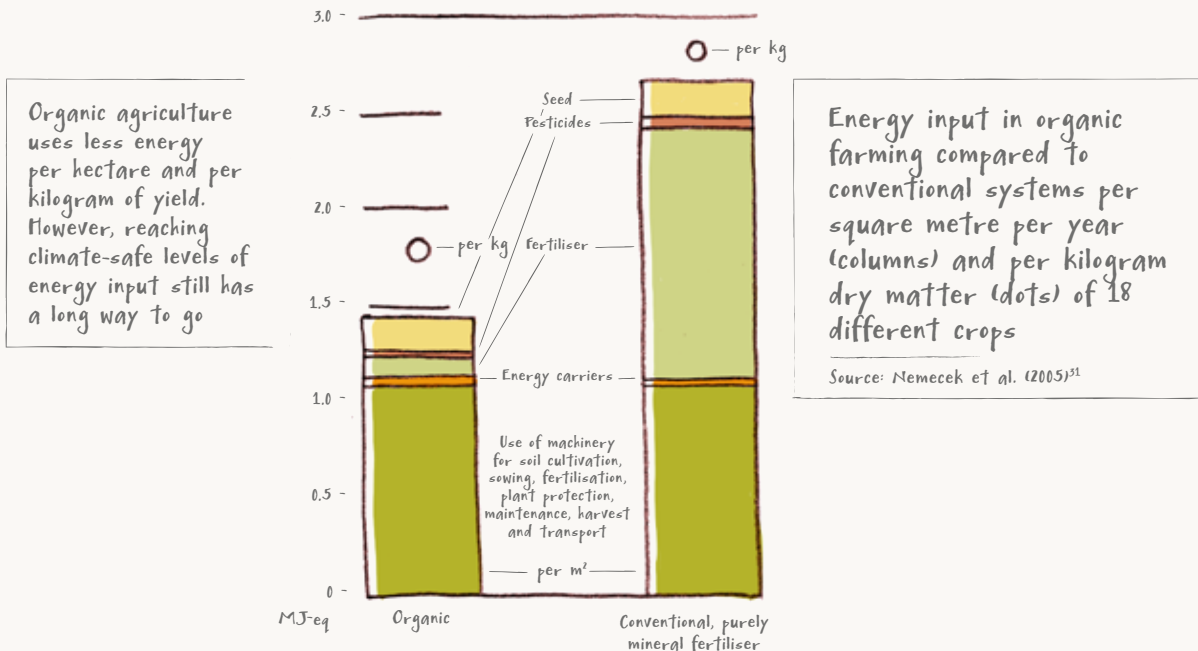 Organic agriculture
uses less energy
per hectare and per
kilogram of yield.
However, reaching
climate-safe levels of
energy input still has
a long way to go
3.0
2.5
2.0
1.5
1.0
0.5
0
MJ-eq
per kg
per kg
Seed
Pesticides
Fertiliser
Energy carriers
Use of machinery
for soil cultivation,
sowing, fertilisation,
plant protection,
maintenance, harvest
and transport
per m²
Organic
Conventional, purely
mineral fertiliser
Energy input in organic
farming compared to
conventional systems per
square metre per year
(columns) and per kilogram
dry matter (dots) of 18
different crops
Source: Nemecek et al. (2005)³¹